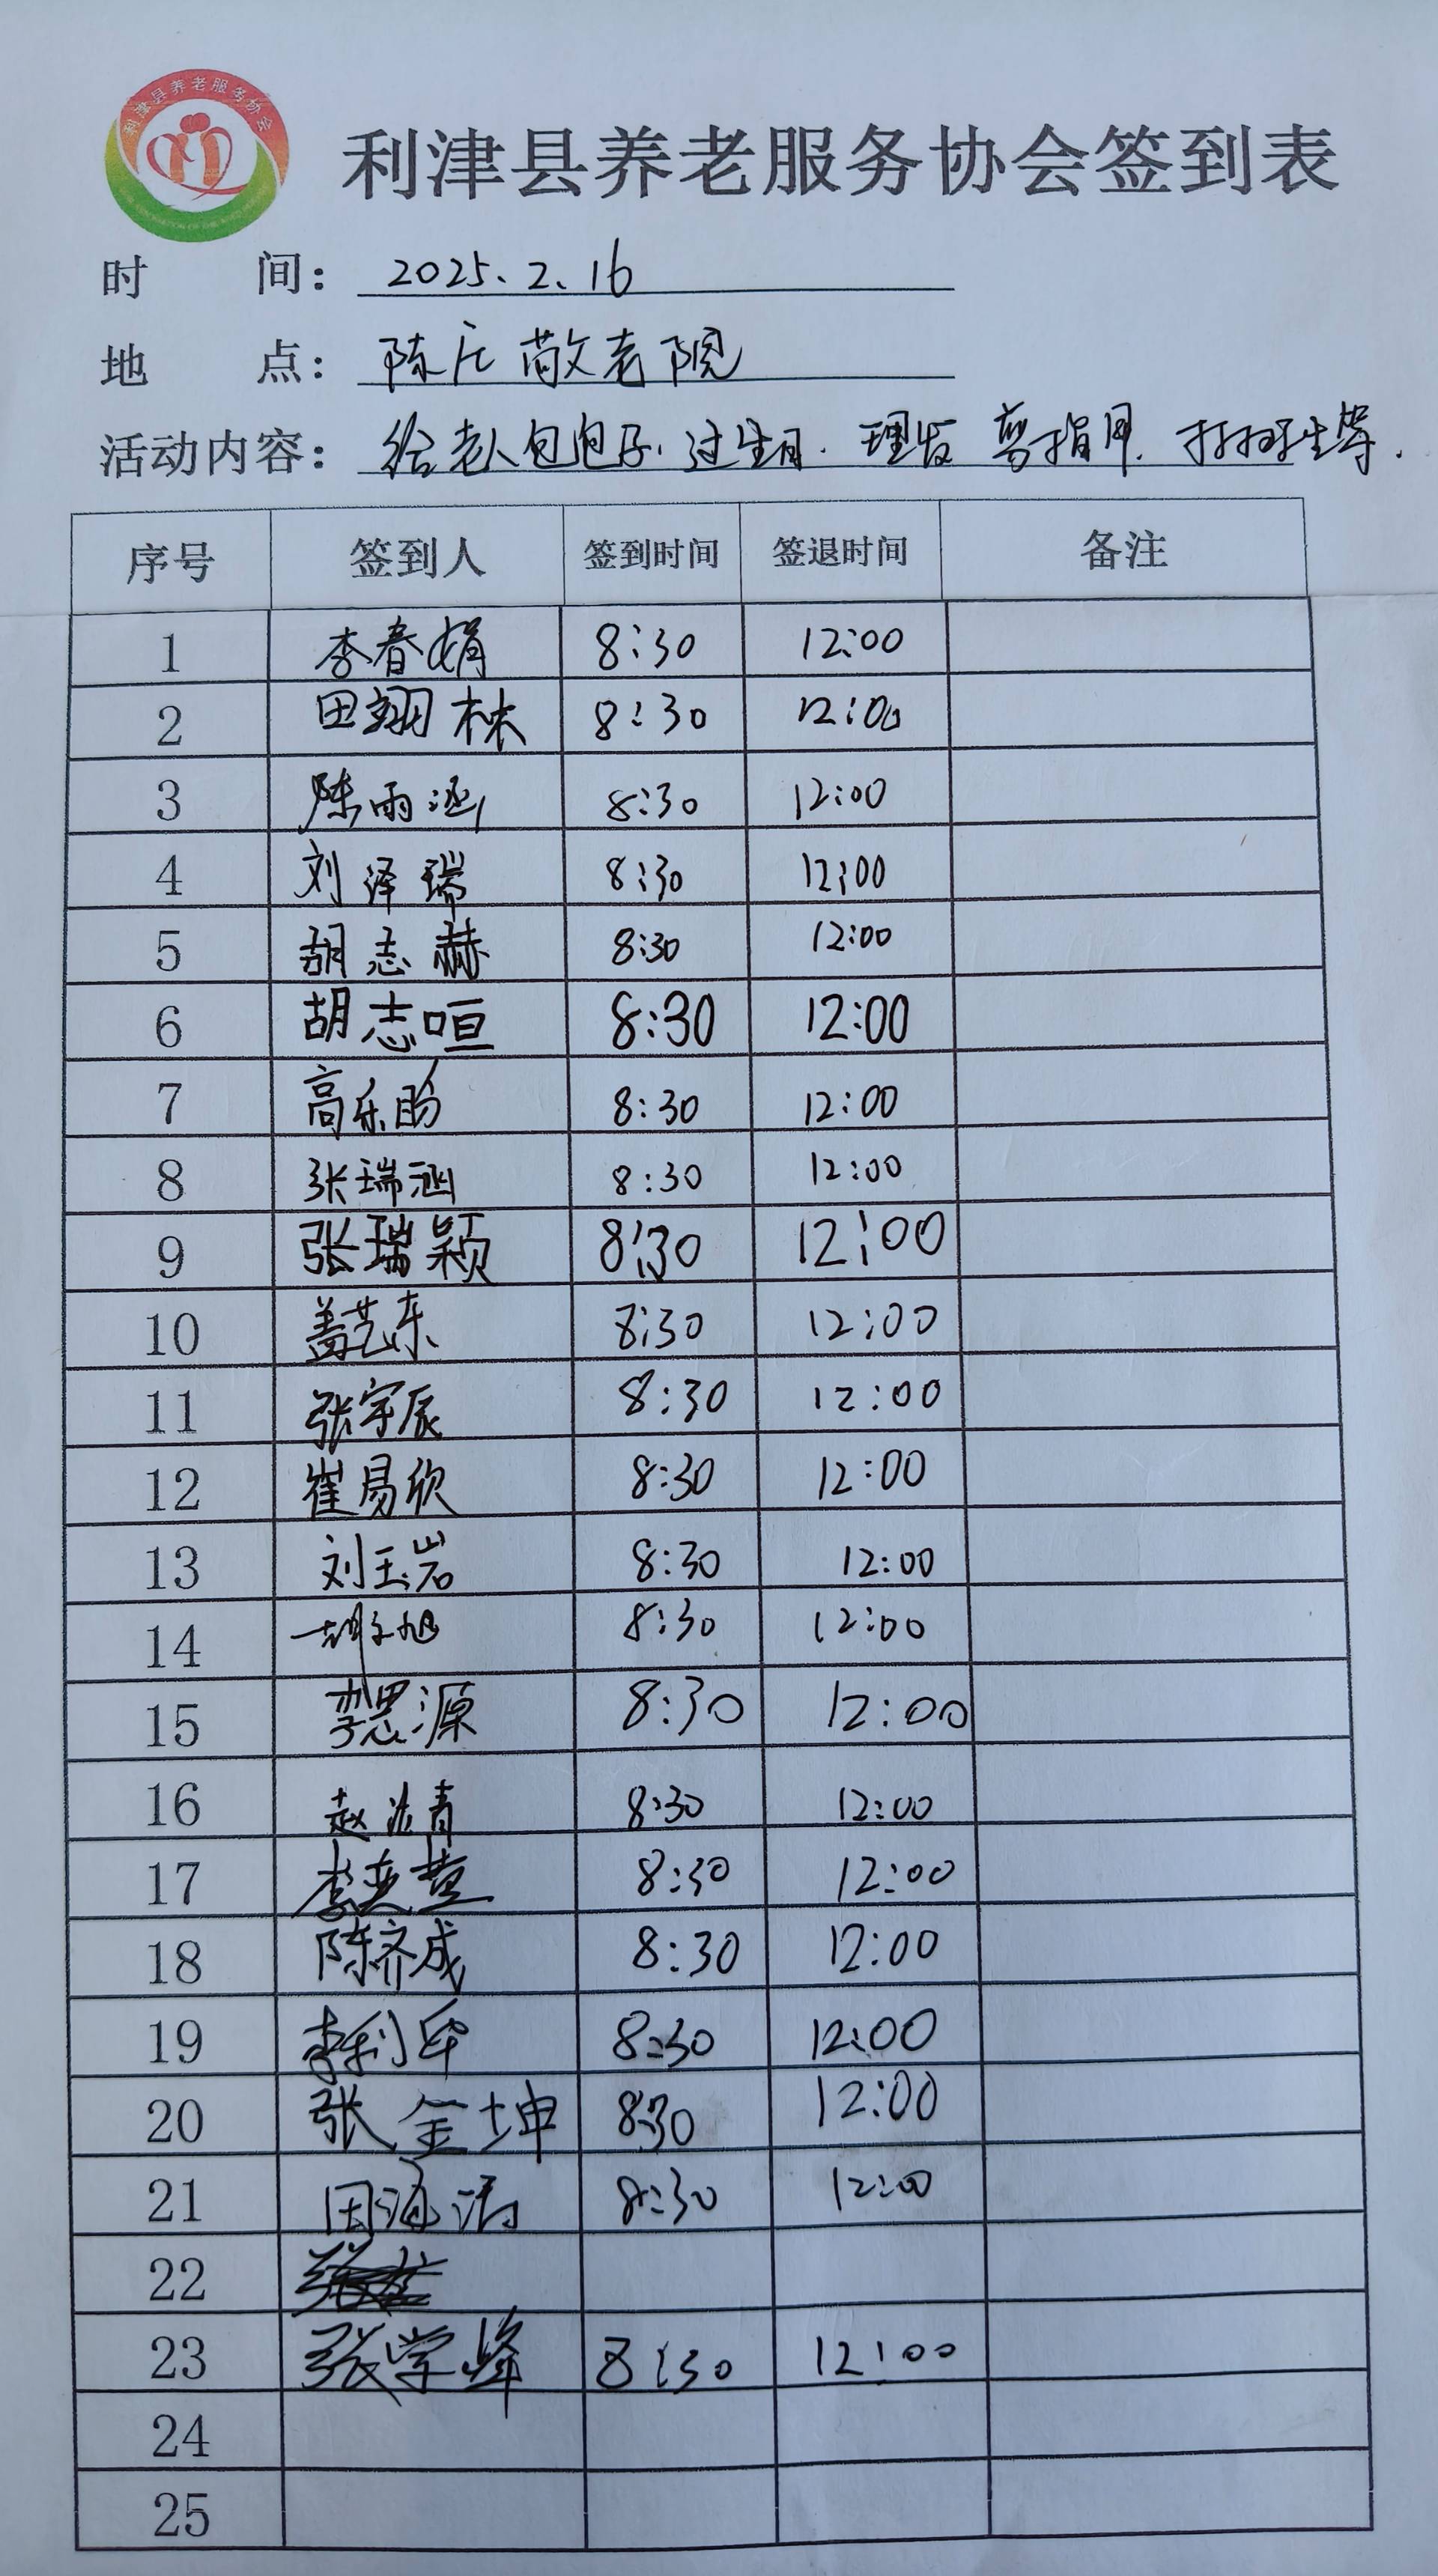 利津县养老服务协会
利津县养老服务协会签到表
时 间： 2025.2.16
地 点： 陈庄敬老院
活动内容： 给老人包包子.过生日.理发 剪指甲.打扫卫生等.
序号 签到人 签到时间 签退时间 备注
1 李春娟 8:30 12:00
2 田翔林 8:30 12:00
3 陈雨涵 8:30 12:00
4 刘泽瑞 8:30 12:00
5 胡志赫 8:30 12:00
6 胡志咺 8:30 12:00
7 高乐盼 8:30 12:00
8 张瑞涵 8:30 12:00
9 张瑞颖 8:30 12:00
10 盖艺东 8:30 12:00
11 张宇辰 8:30 12:00
12 崔易欣 8:30 12:00
13 刘玉岩 8:30 12:00
14 胡子旭 8:30 12:00
15 李思源 8:30 12:00
16 赵洁青 8:30 12:00
17 8:30 12:00
18 陈齐成 8:30 12:00
19 李利华 8:30 12:00
20 张金坤 8:30 12:00
21 田海洁 8:30 12:00
22
23 张学峰 8:30 12:00
24
25